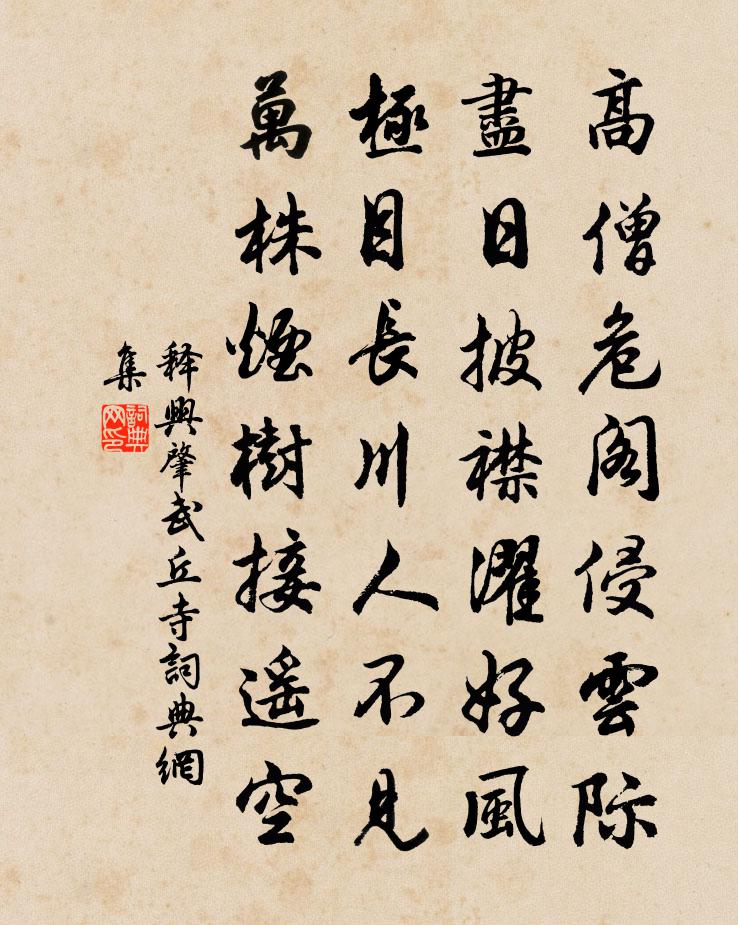 高僧危阁侵雲际
盡日披襟濯好風
極目長川人不見
萬株煙樹接遥空
释興肇武丘寺詞典網
集
詞典
网印